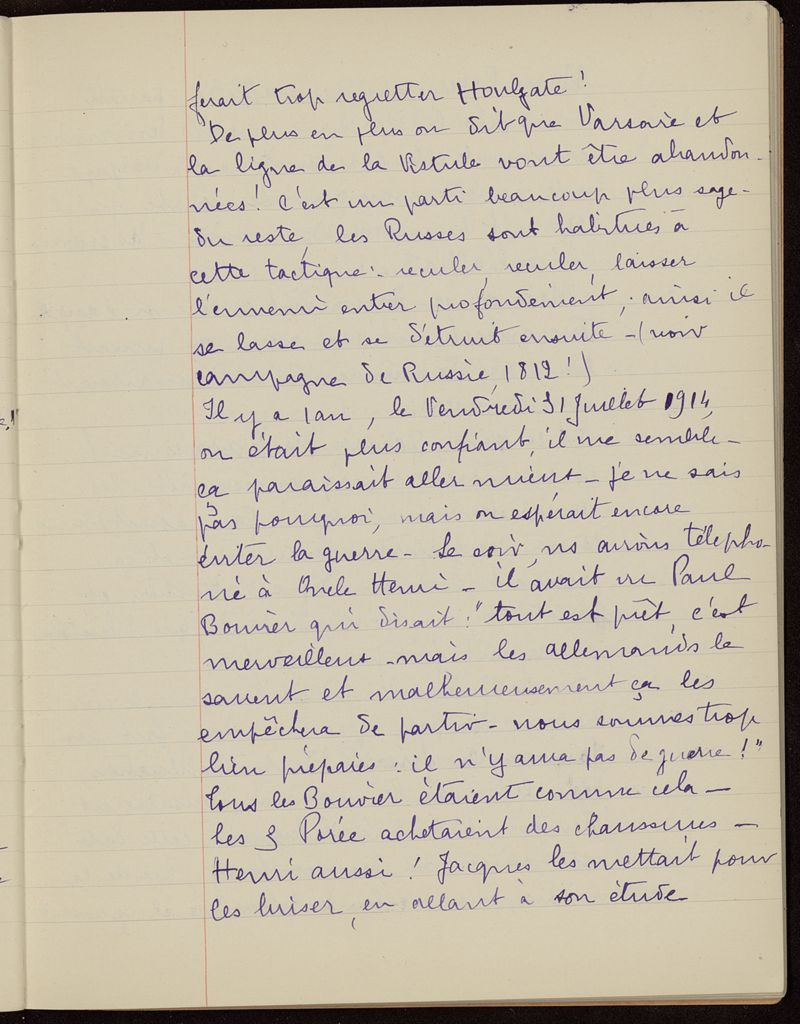 ferait trop regretter Houlgate !
De plus en plus on dit que Varsovie et
la ligne de la Vistule vont être abandon-
nées ! C'est un parti beaucoup plus sage -
du reste, les Russes sont habitués à
cette tactique : reculer, reculer, laisser
l'ennemi entrer profondément, ainsi il
se lasse et se détruit ensuite - (voir
campagne de Russie, 1812 !)
Il y a 1 an, le Vendredi 31 Juillet 1914,
on était plus confiant, il me semble -
ça paraissait aller mieux - je ne sais
pas pourquoi, mais on espérait encore
éviter la guerre - Le soir, ns avions télépho-
né à Oncle Henri - il avait vu Paul
Bouvier qui disait : "tout est prêt, c'est
merveilleux - mais les allemands le
savent et malheureusement ça les
empêchera de partir - nous sommes trop
bien préparés : il n'y aura pas de guerre !"
Tous les Bouvier étaient comme cela -
Les 3 Porée achetaient des chaussures -
Henri aussi ! Jacques les mettait pour
les briser, en allant à son étude